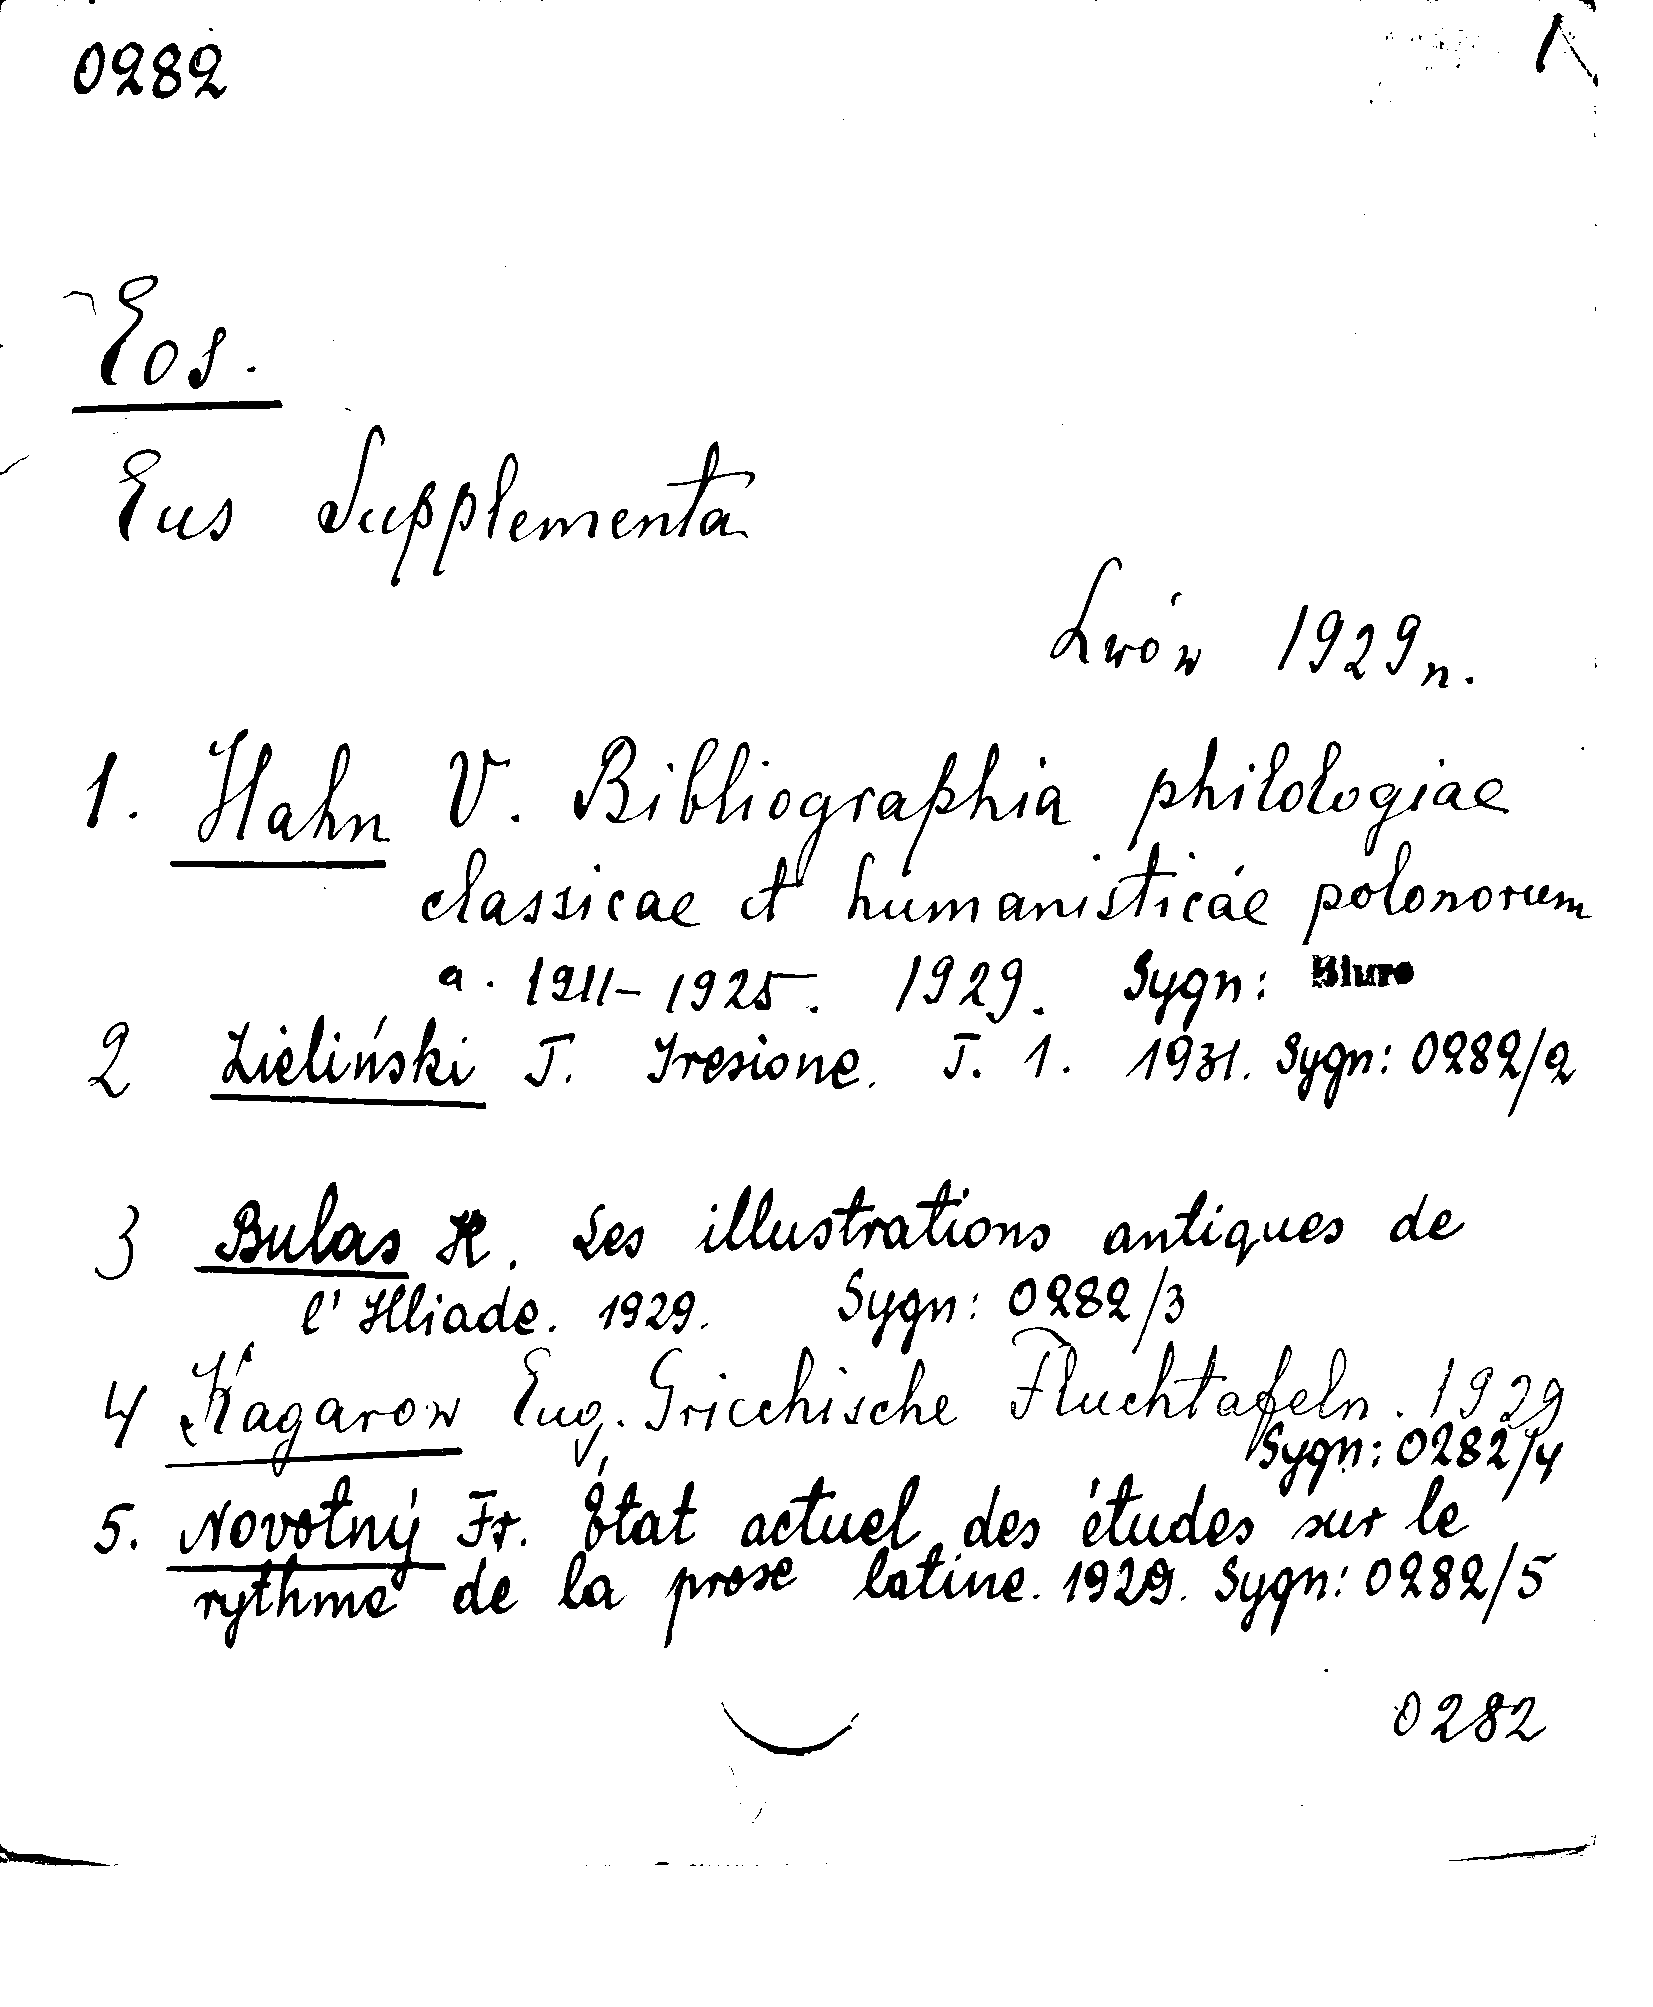 0282
1
Eos.
Eus Supplementa
Lwów 1929 n.
1. Hahn V. Bibliographia philologiae
classicae et humanisticae polonorum
a. 1911-1925. 1929. Sygn: Biuro
2 Zieliński T. Iresione. T. 1. 1931. Sygn: 0282/2
3 Bulas K. Les illustrations antiques de
l'Illiade. 1929. Sygn: 0282/3
4 Kagarow Eug. Gricchische Fluchtafeln. 1929
Sygn: 0282/4
5. Novotný Fr. État actuel des études sur le
rythme de la prose latine. 1929. Sygn: 0282/5
0282